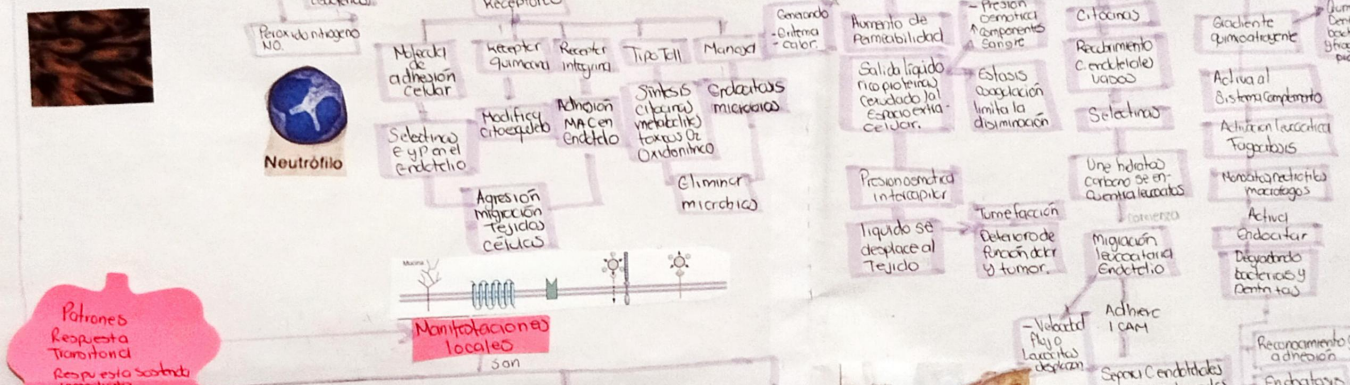 Receptores
Peroxidonitrogeno
NO.
Neutrófilo
Molecula
de
adhesión
celular
Selectinas
e y p en el
Endotelio
Receptor
quimiocina
Modifica
citoesqueleto
Receptor
integrina
Adhesion
MAC en
Endotelio
Agresión
migración
Tejidos
células
Tipo Toll
Síntesis
citocinas
metabolitos
toxicos O2
Oxido nitrico
Manosa
Endocitosis
microbios
Eliminar
microbios
Mucina
Manifestaciones
locales
son
Patrones
Respuesta
Transitoria
Respuesta Sostenida
Generando
- Eritema
- calor.
Aumento de
Permeabilidad
Salida líquido
rico proteinas
(exudado) al
Espacio extra-
celular.
Presion osmotica
intercapilar
liquido se
desplace al
Tejido
- Presion
osmotica
componentes
Sangre
Estasis
coagulación
limita la
disiminación
Tumefacción
Deterioro de
función dolor
y tumor.
Citocinas
Reclutamiento
C. endoteliales
vasos
Selectinas
Une hidratos
carbono se en-
cuentra leucocitos
comienza
Migración
leucocitaria
Endotelio
Adhere
ICAM
- Velocidad
Flujo
Leucocitos
desplazan
Separa C endoteliales
Gradiente
quimioatrayente
Activa al
Sistema Complemento
Activacion leucocitica
Fagocitosis
Monocitos, neutrofilos
macrofagos
Activa
Endocitar
Degradando
bacterias y
Reconocimiento
adhesión